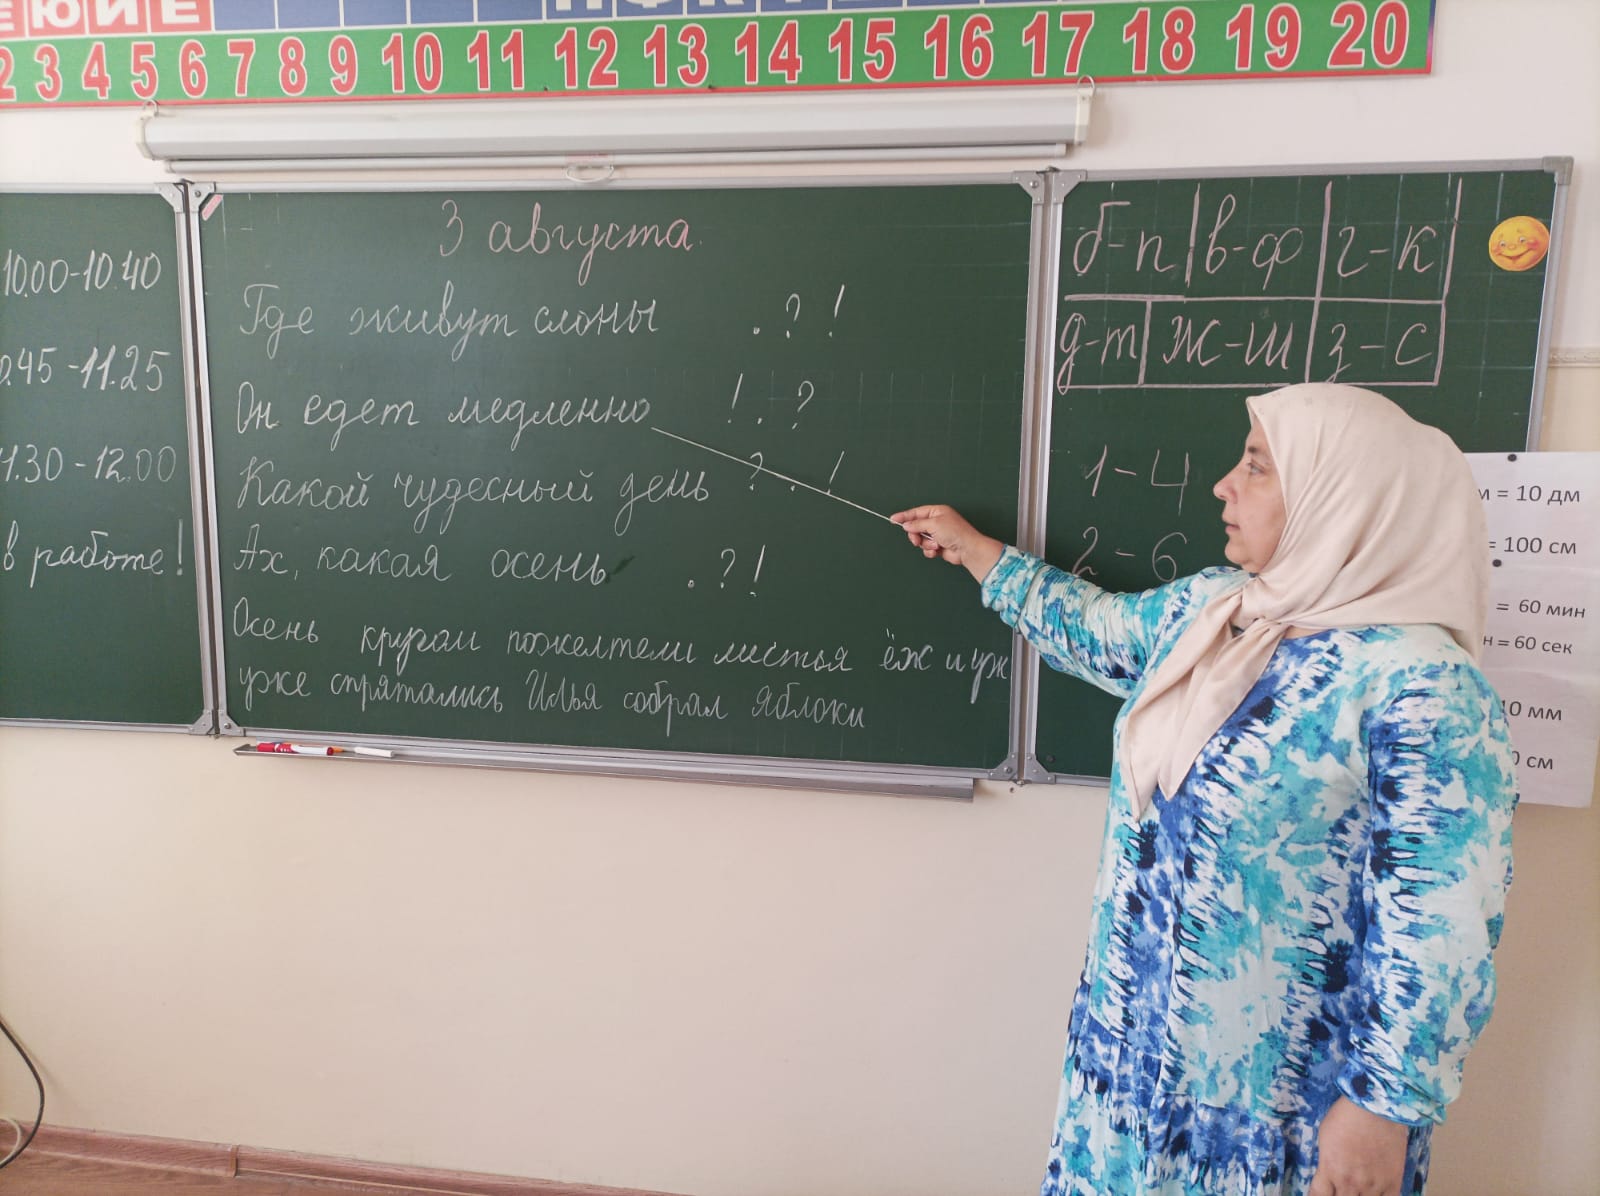 ЕЮИЕ
2 3 4 5 6 7 8 9 10 11 12 13 14 15 16 17 18 19 20
10.00-10.40
0.45-11.25
1.30-12.00
в работе!
3 августа
Где живут слоны . ? !
Он едет медленно ! . ?
Какой чудесный день ? . !
Ах, какая осень . ? !
Осень кругом пожелтели листья ёж и уж
уже спрятались Илья собрал яблоки
б-п в-ф г-к
д-т ж-ш з-с
1-4
2-6
м = 10 дм
= 100 см
= 60 мин
н = 60 сек
10 мм
0 см